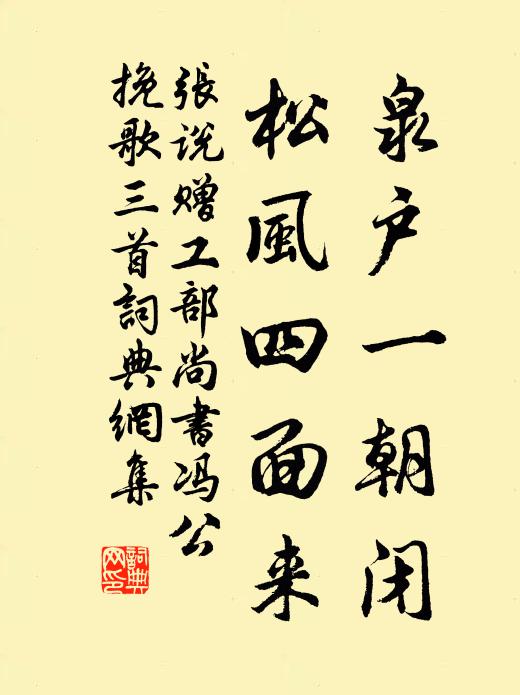 泉户一朝闭
松風四面来
張説贈工部尚書冯公
挽歌三首詞典網集
詞典网印